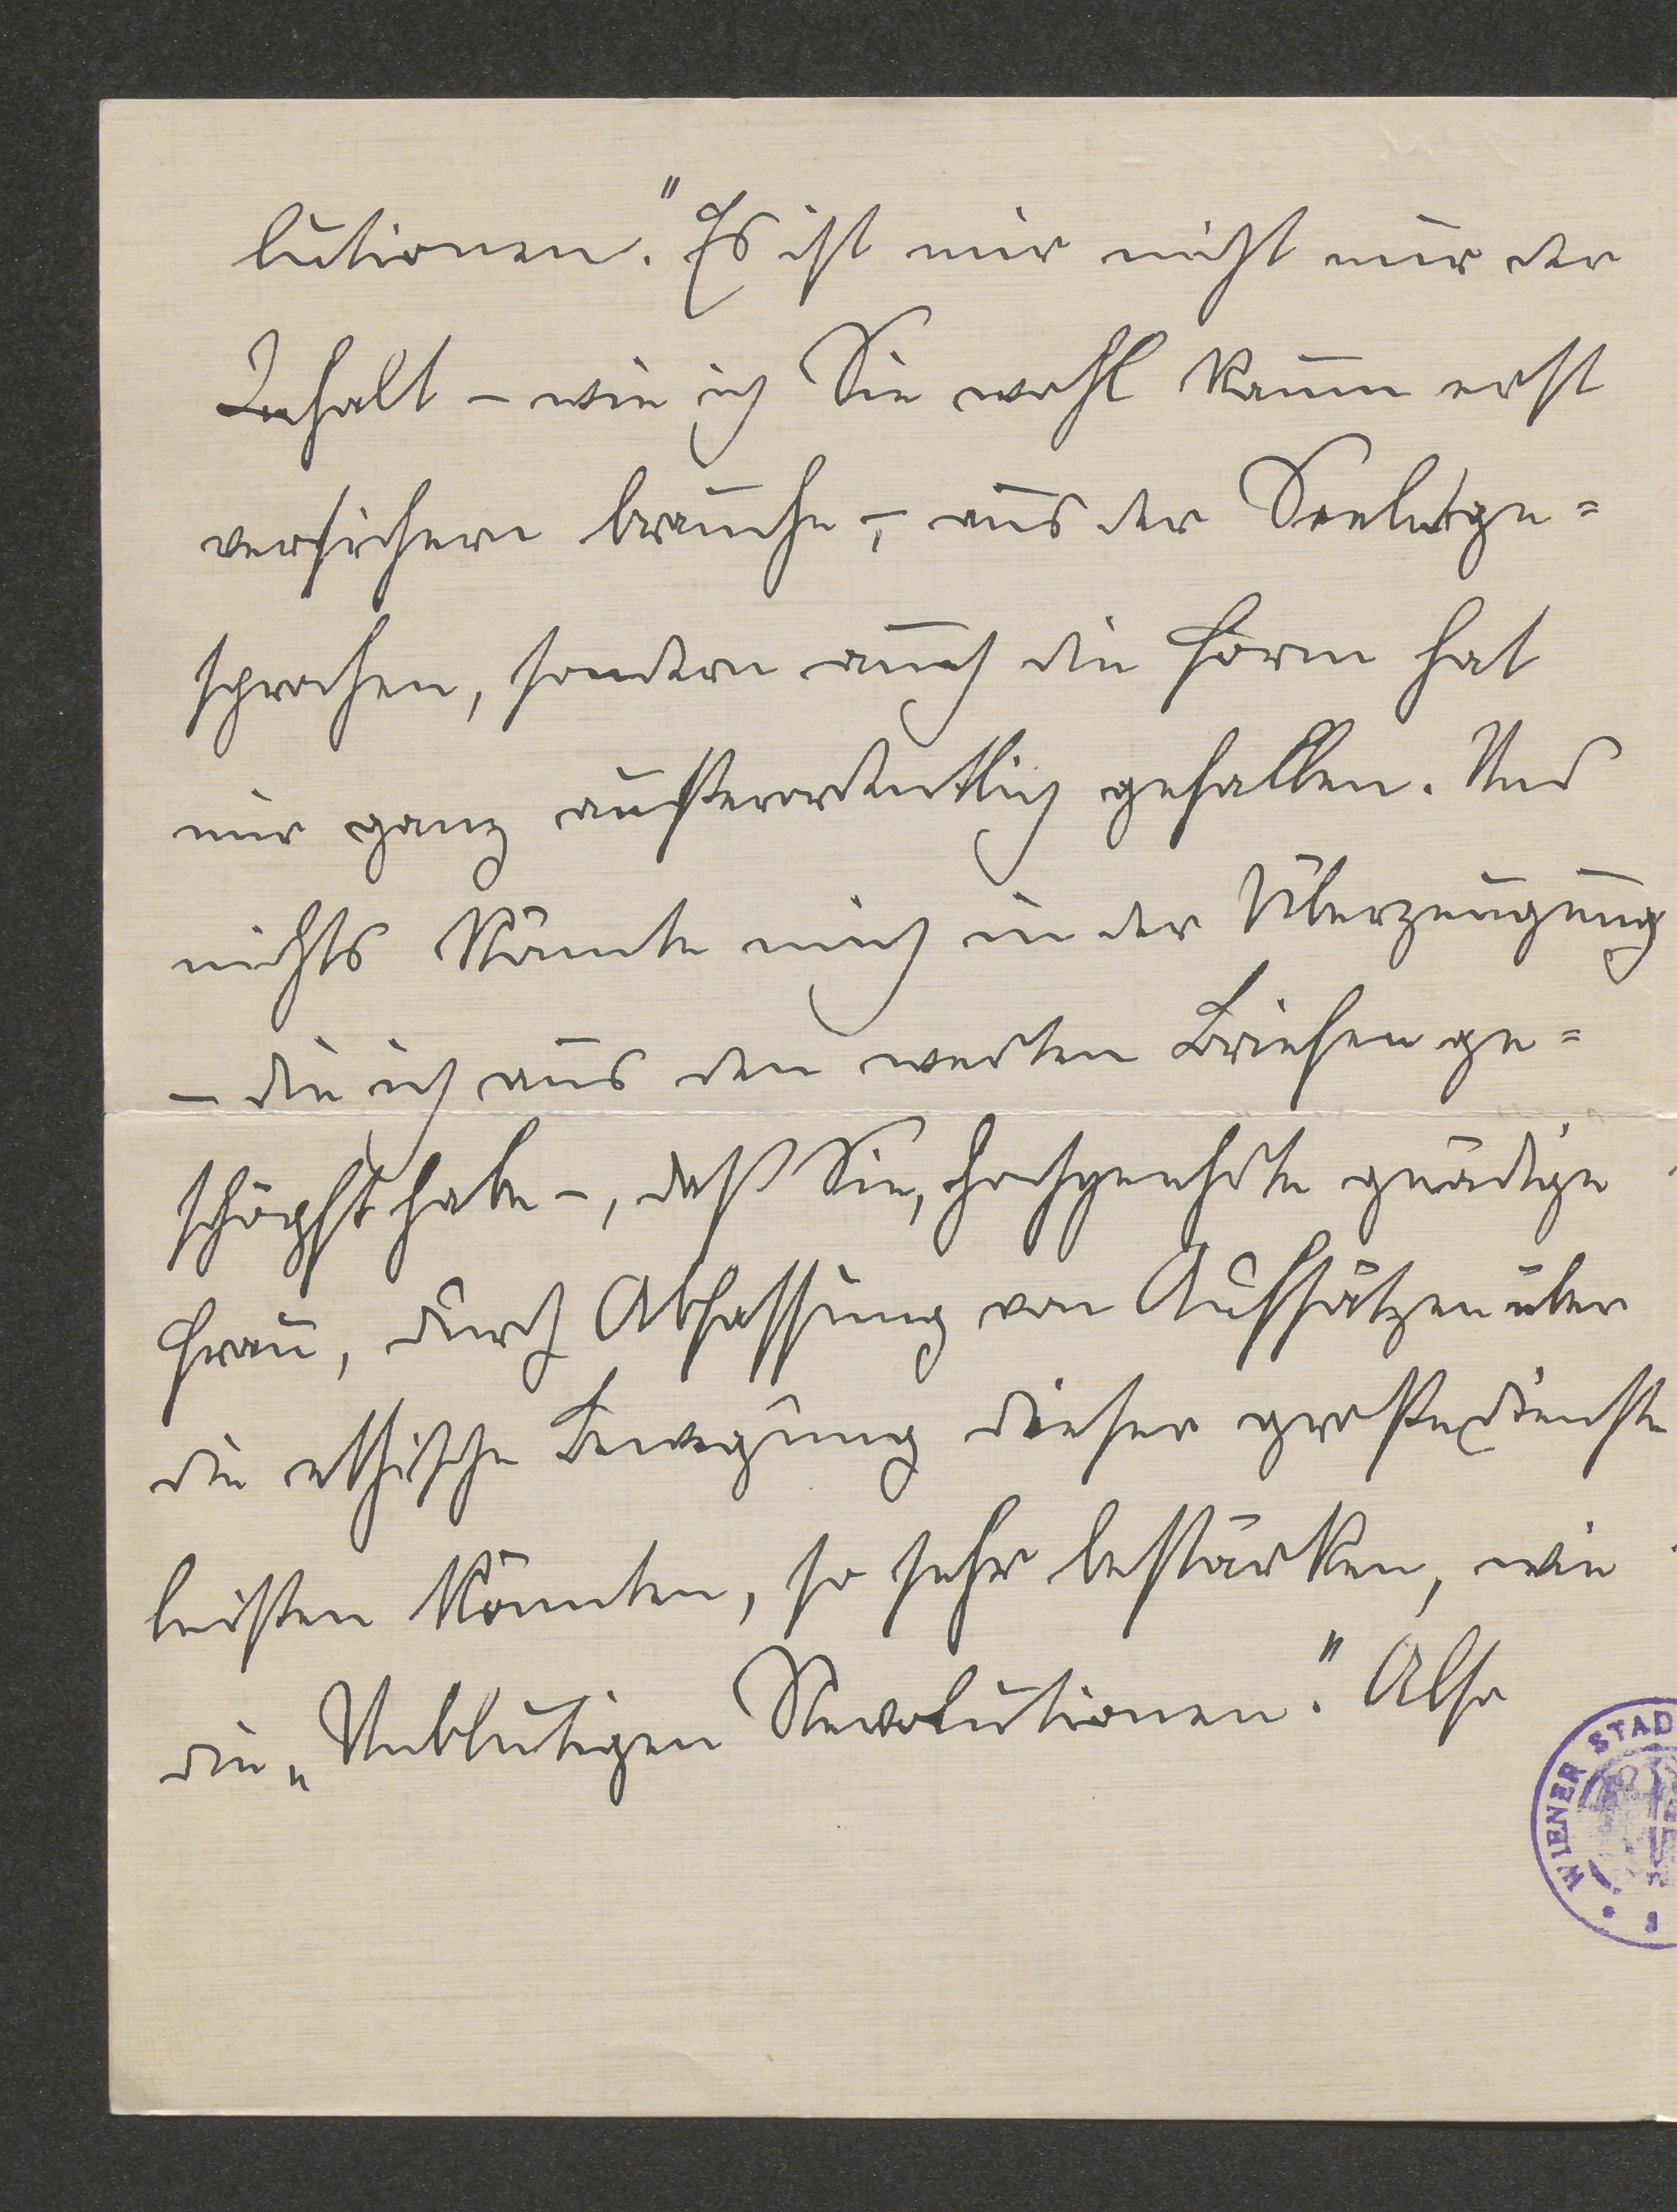 lutionen." Es ist mir nicht nur der
Inhalt – wie ich Sie wohl kaum erst
versichern brauche –, aus der Seele ge=
sprochen, sondern auch die Form hat
mir ganz außerordentlich gefallen. Und
nichts könnte mich in der Überzeugung
– die ich aus den werten Briefen ge=
schöpft habe –, daß Sie, hochgeehrte gnädige
Frau, durch Abfassung von Aufsätzen über
die ethische Bewegung dieser große Dienste
leisten könnten, so sehr bestärken, wie
die „Unblutigen Revolutionen". Also
WIENER STAD